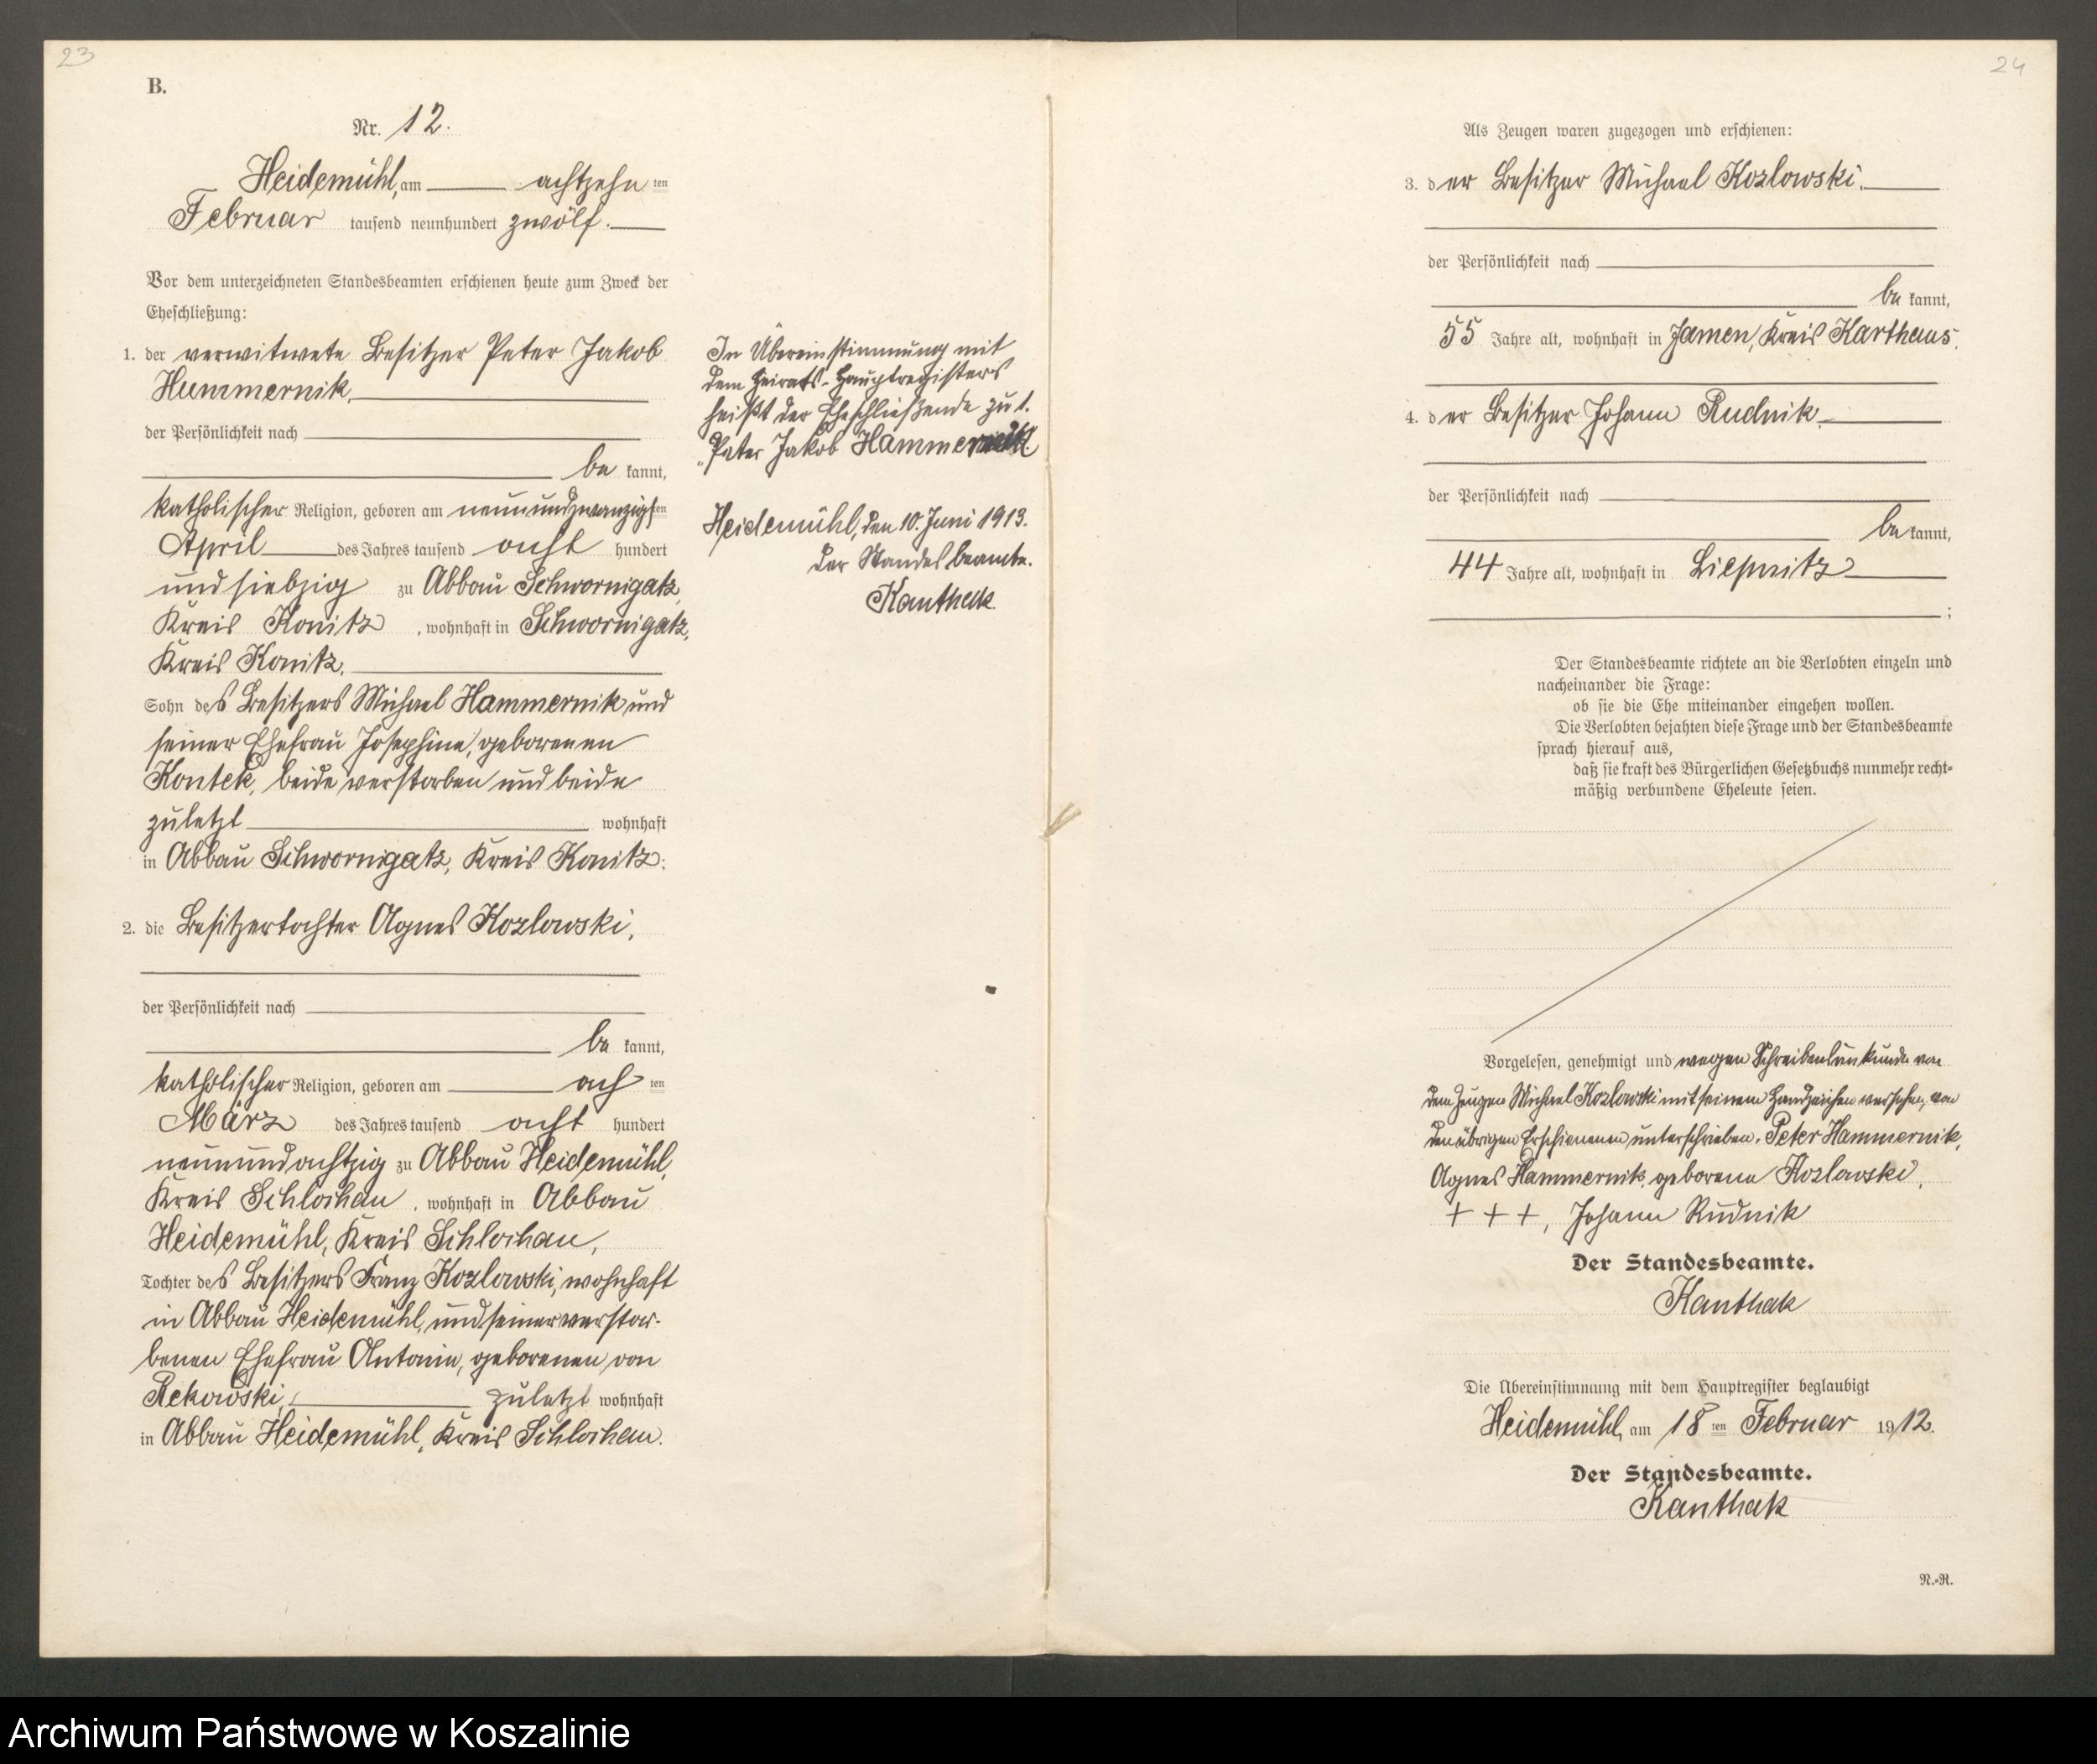 23
B.
Nr. 12.
Heidemühl, am achtzehn ten
Februar tausend neunhundert zwölf.
Vor dem unterzeichneten Standesbeamten erschienen heute zum Zweck der
Eheschließung:
1. der verwitwete Besitzer Peter Jakob
Hummernik,
der Persönlichkeit nach
be kannt,
katholischer Religion, geboren am neunundzwanzigsten
April des Jahres tausend acht hundert
und siebzig zu Abbau Schwornigatz,
Kreis Konitz, wohnhaft in Schwornigatz,
Kreis Konitz.
Sohn des Besitzers Michael Hammernik und
seiner Ehefrau Josephine, geborenen
Kontek, beide verstorben und beide
zuletzt wohnhaft
in Abbau Schwornigatz, Kreis Konitz;
2. die Besitzertochter Agnes Kozlowski,
der Persönlichkeit nach
be kannt,
katholischer Religion, geboren am ach ten
März des Jahres tausend acht hundert
neunundachtzig zu Abbau Heidemühl,
Kreis Schlochau, wohnhaft in Abbau
Heidemühl, Kreis Schlochau,
Tochter des Besitzers Franz Kozlowski, wohnhaft
in Abbau Heidemühl, und seiner verstor-
benen Ehefrau Antonie, geborenen von
Rekowski, zuletzt wohnhaft
in Abbau Heidemühl, Kreis Schlochau.
In Übereinstimmung mit
dem Heirats-Hauptregisters
heißt der Eheschließende zu 1.
"Peter Jakob Hammernik".
Heidemühl, den 10. Juni 1913.
Der Standesbeamte.
Kanthak.
24
Als Zeugen waren zugezogen und erschienen:
3. der Besitzer Michael Kozlowski.
der Persönlichkeit nach
be kannt,
55 Jahre alt, wohnhaft in Jamen, Kreis Karthaus.
4. der Besitzer Johann Rudnik.
der Persönlichkeit nach
be kannt,
44 Jahre alt, wohnhaft in Liepnitz
;
Der Standesbeamte richtete an die Verlobten einzeln und
nacheinander die Frage:
ob sie die Ehe miteinander eingehen wollen.
Die Verlobten bejahten diese Frage und der Standesbeamte
sprach hierauf aus,
daß sie kraft des Bürgerlichen Gesetzbuchs nunmehr recht-
mäßig verbundene Eheleute seien.
Vorgelesen, genehmigt und wegen Schreibensunkunde von
dem Zeugen Michael Kozlowski mit seinem Handzeichen versehen, von
den übrigen Erschienenen unterschrieben. Peter Hammernik,
Agnes Hammernik, geborene Kozlowski,
+ + +, Johann Rudnik
Der Standesbeamte.
Kanthak
Die Übereinstimmung mit dem Hauptregister beglaubigt
Heidemühl, am 18 ten Februar 1912.
Der Standesbeamte.
Kanthak
N.-R.
Archiwum Państwowe w Koszalinie